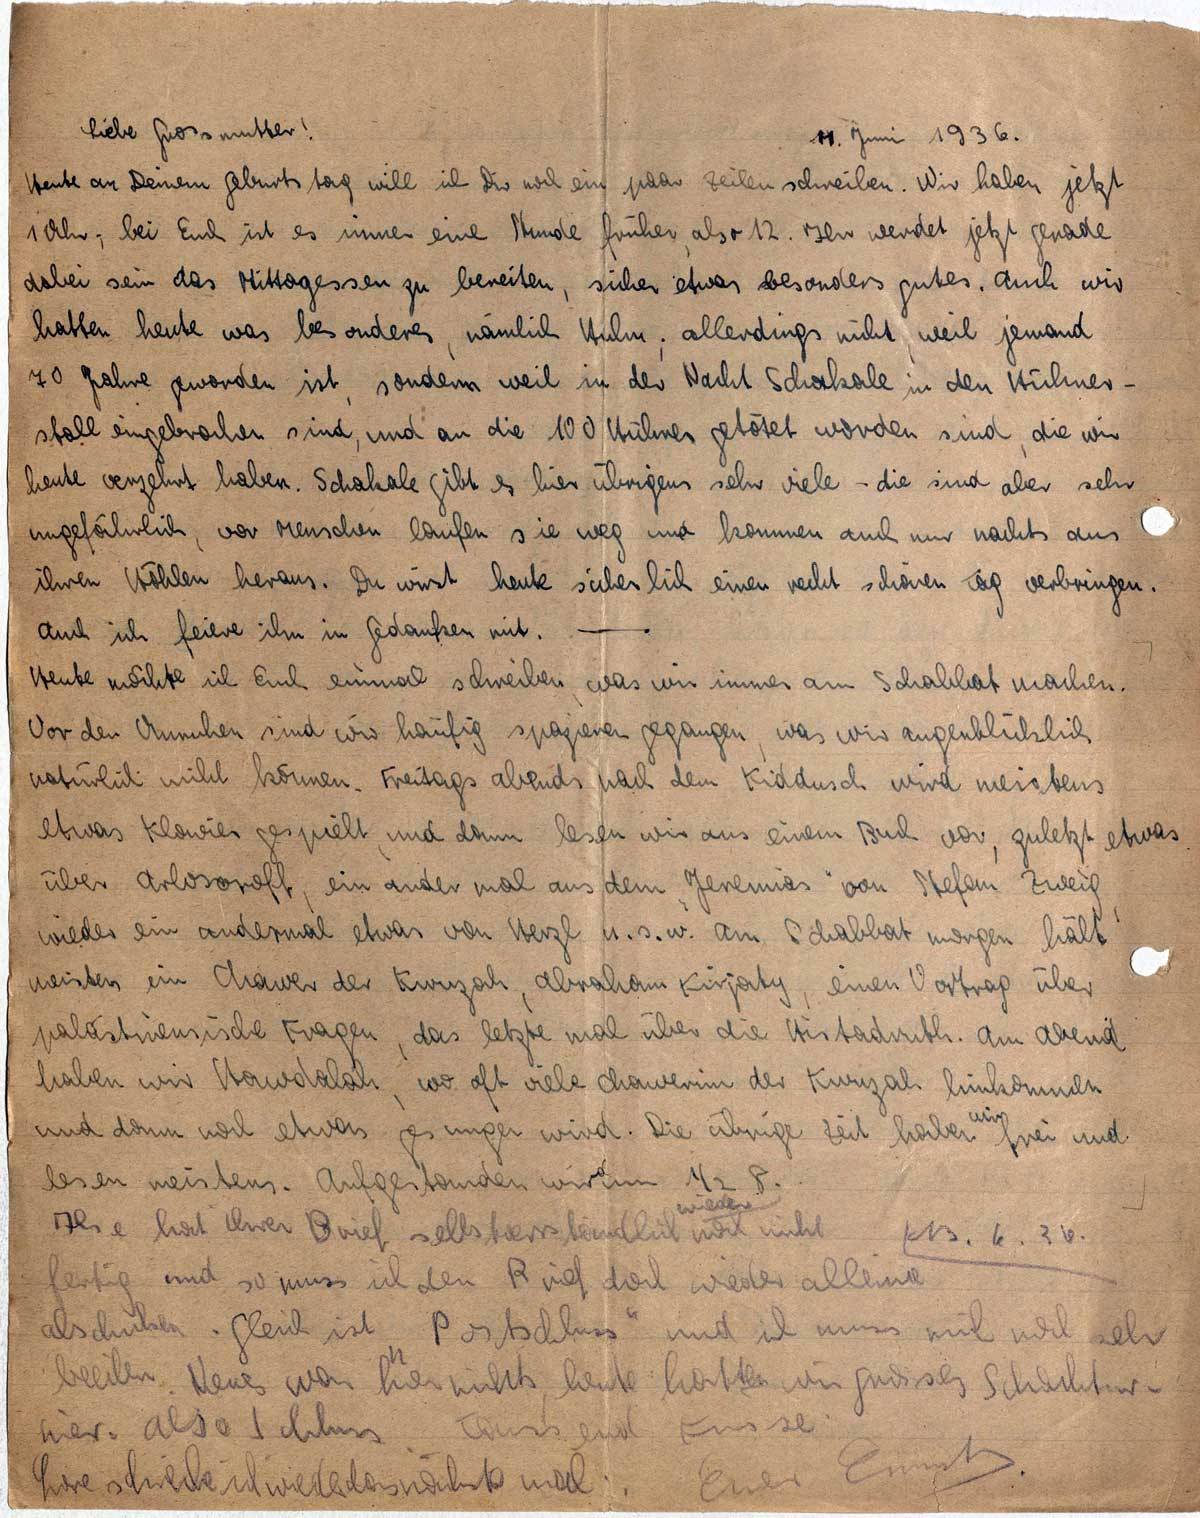 Liebe Grossmutter!
11. Juni 1936.
Heute an Deinem Geburtstag will ich Dir noch ein paar Zeilen schreiben. Wir haben jetzt
1 Uhr; bei Euch ist es immer eine Stunde früher, also 12. Ihr werdet jetzt gerade
dabei sein das Mittagessen zu bereiten, sicher etwas besonders gutes. Auch wir
hatten heute was besonderes, nämlich Huhn; allerdings nicht, weil jemand
70 Jahre geworden ist, sondern weil in der Nacht Schakale in den Hühner-
stall eingebrochen sind, und an die 100 Hühner getötet worden sind, die wir
heute verzehrt haben. Schakale gibt es hier übrigens sehr viele – die sind aber sehr
ungefährlich, vor Menschen laufen sie weg und kommen auch nur nachts aus
ihren Höhlen heraus. Du wirst heute sicherlich einen recht schönen Tag verbringen.
Auch ich feiere ihn in Gedanken mit. —
Heute möchte ich Euch einmal schreiben, was wir immer am Schabbat machen.
Vor den Unruhen sind wir häufig spazieren gegangen, was wir augenblicklich
natürlich nicht können. Freitags abends nach dem Kiddusch wird meistens
etwas Klavier gespielt, und dann lesen wir aus einem Buch vor, zuletzt etwas
über Arlosoroff, ein ander mal aus dem „Jeremias" von Stefan Zweig,
wieder ein andermal etwas von Herzl u.s.w. Am Schabbat morgen hält
meistens ein Chawer der Kwuzah, Abraham Kirjaty, einen Vortrag über
palästinensische Fragen, das letzte mal über die Histadruth. Am Abend
haben wir Hawdalah, wo oft viele Chawerim der Kwuzah hinkommen
und dann noch etwas gesungen wird. Die übrige Zeit haben wir frei und
lesen meistens. Aufgestanden wird um 1/2 8.
Ilse hat ihren Brief selbstverständlich wieder noch nicht
13. 6. 36.
fertig und so muss ich den Brief doch wieder alleine
abschicken. Gleich ist „Postschluss" und ich muss mich noch sehr
beeilen. Neues war hier nichts, heute hatten wir grosses Schachtur-
nier. Also Schluss Tausend Küsse
schicke ich wieder das nächste mal. Euer Ernst.